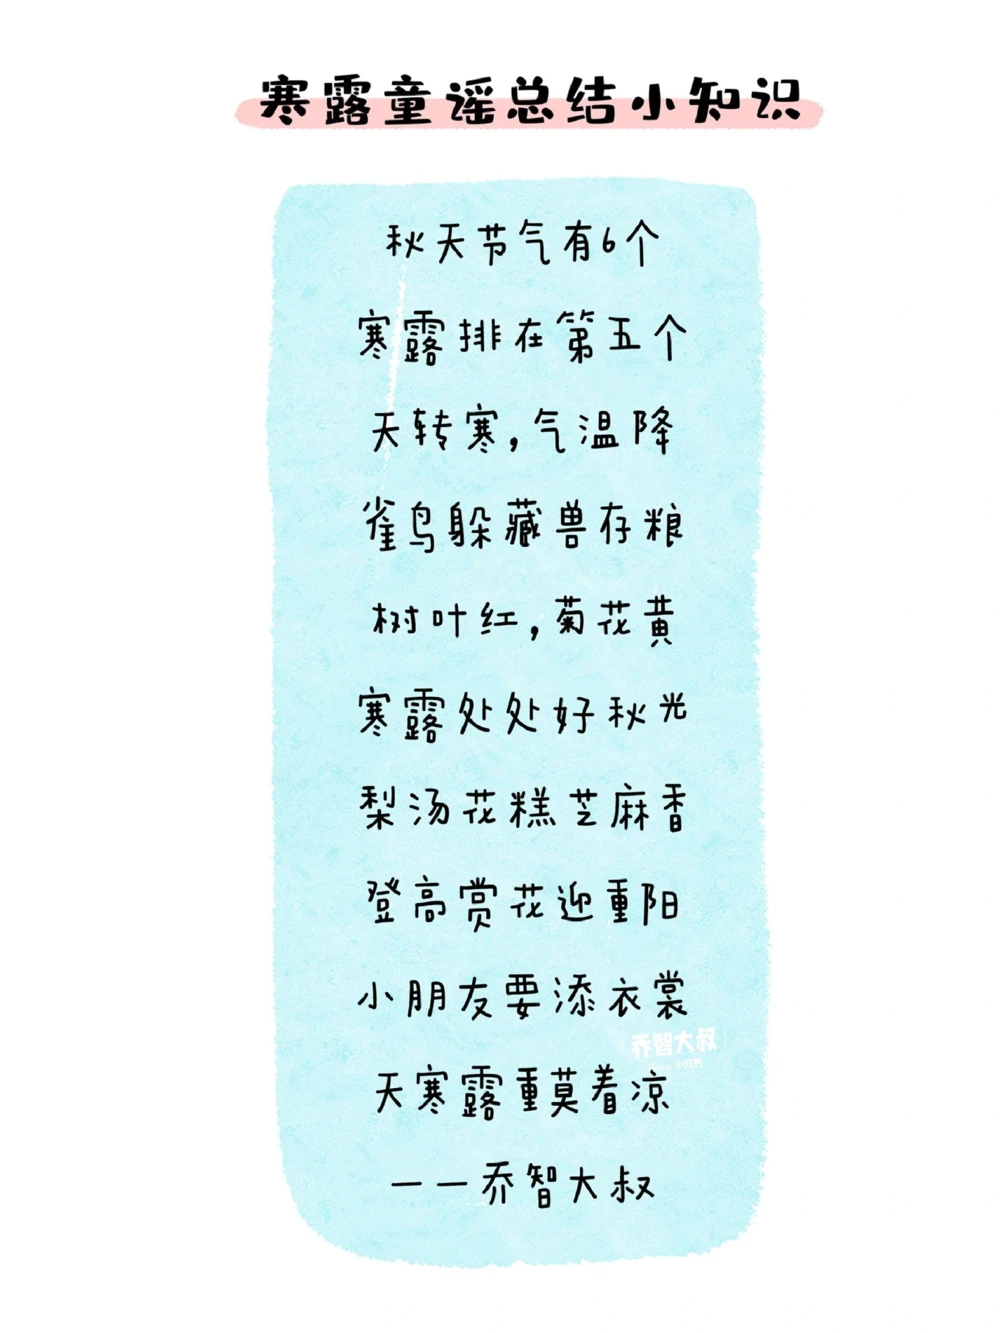 寒露童谣总结小知识
秋天节气有6个
寒露排在第五个
天转寒,气温降
雀鸟躲藏兽存粮
树叶红,菊花黄
寒露处处好秋光
梨汤花糕芝麻香
登高赏花迎重阳
小朋友要添衣裳
乔智大叔
小红书
天寒露重莫着凉
——乔智大叔